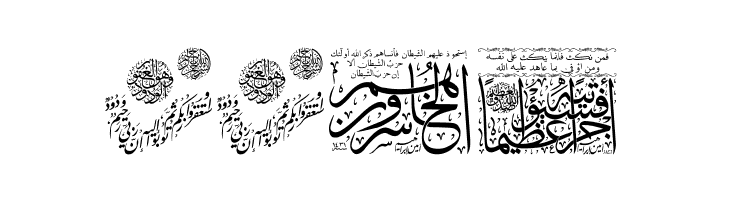 فمن نكث فإنما ينكث على نفسه
ومن أوفى بما عاهد عليه الله
فسيؤتيه أجرا عظيما
إستحوذ عليهم الشيطان فأنساهم ذكر الله أولئك
حزب الشيطان ألا
إن حزب الشيطان
هم الخاسرون
وهو الغفور الودود
واستغفروا ربكم ثم توبوا إليه إن ربي رحيم ودود
وهو الغفور الودود
واستغفروا ربكم ثم توبوا إليه إن ربي رحيم ودود